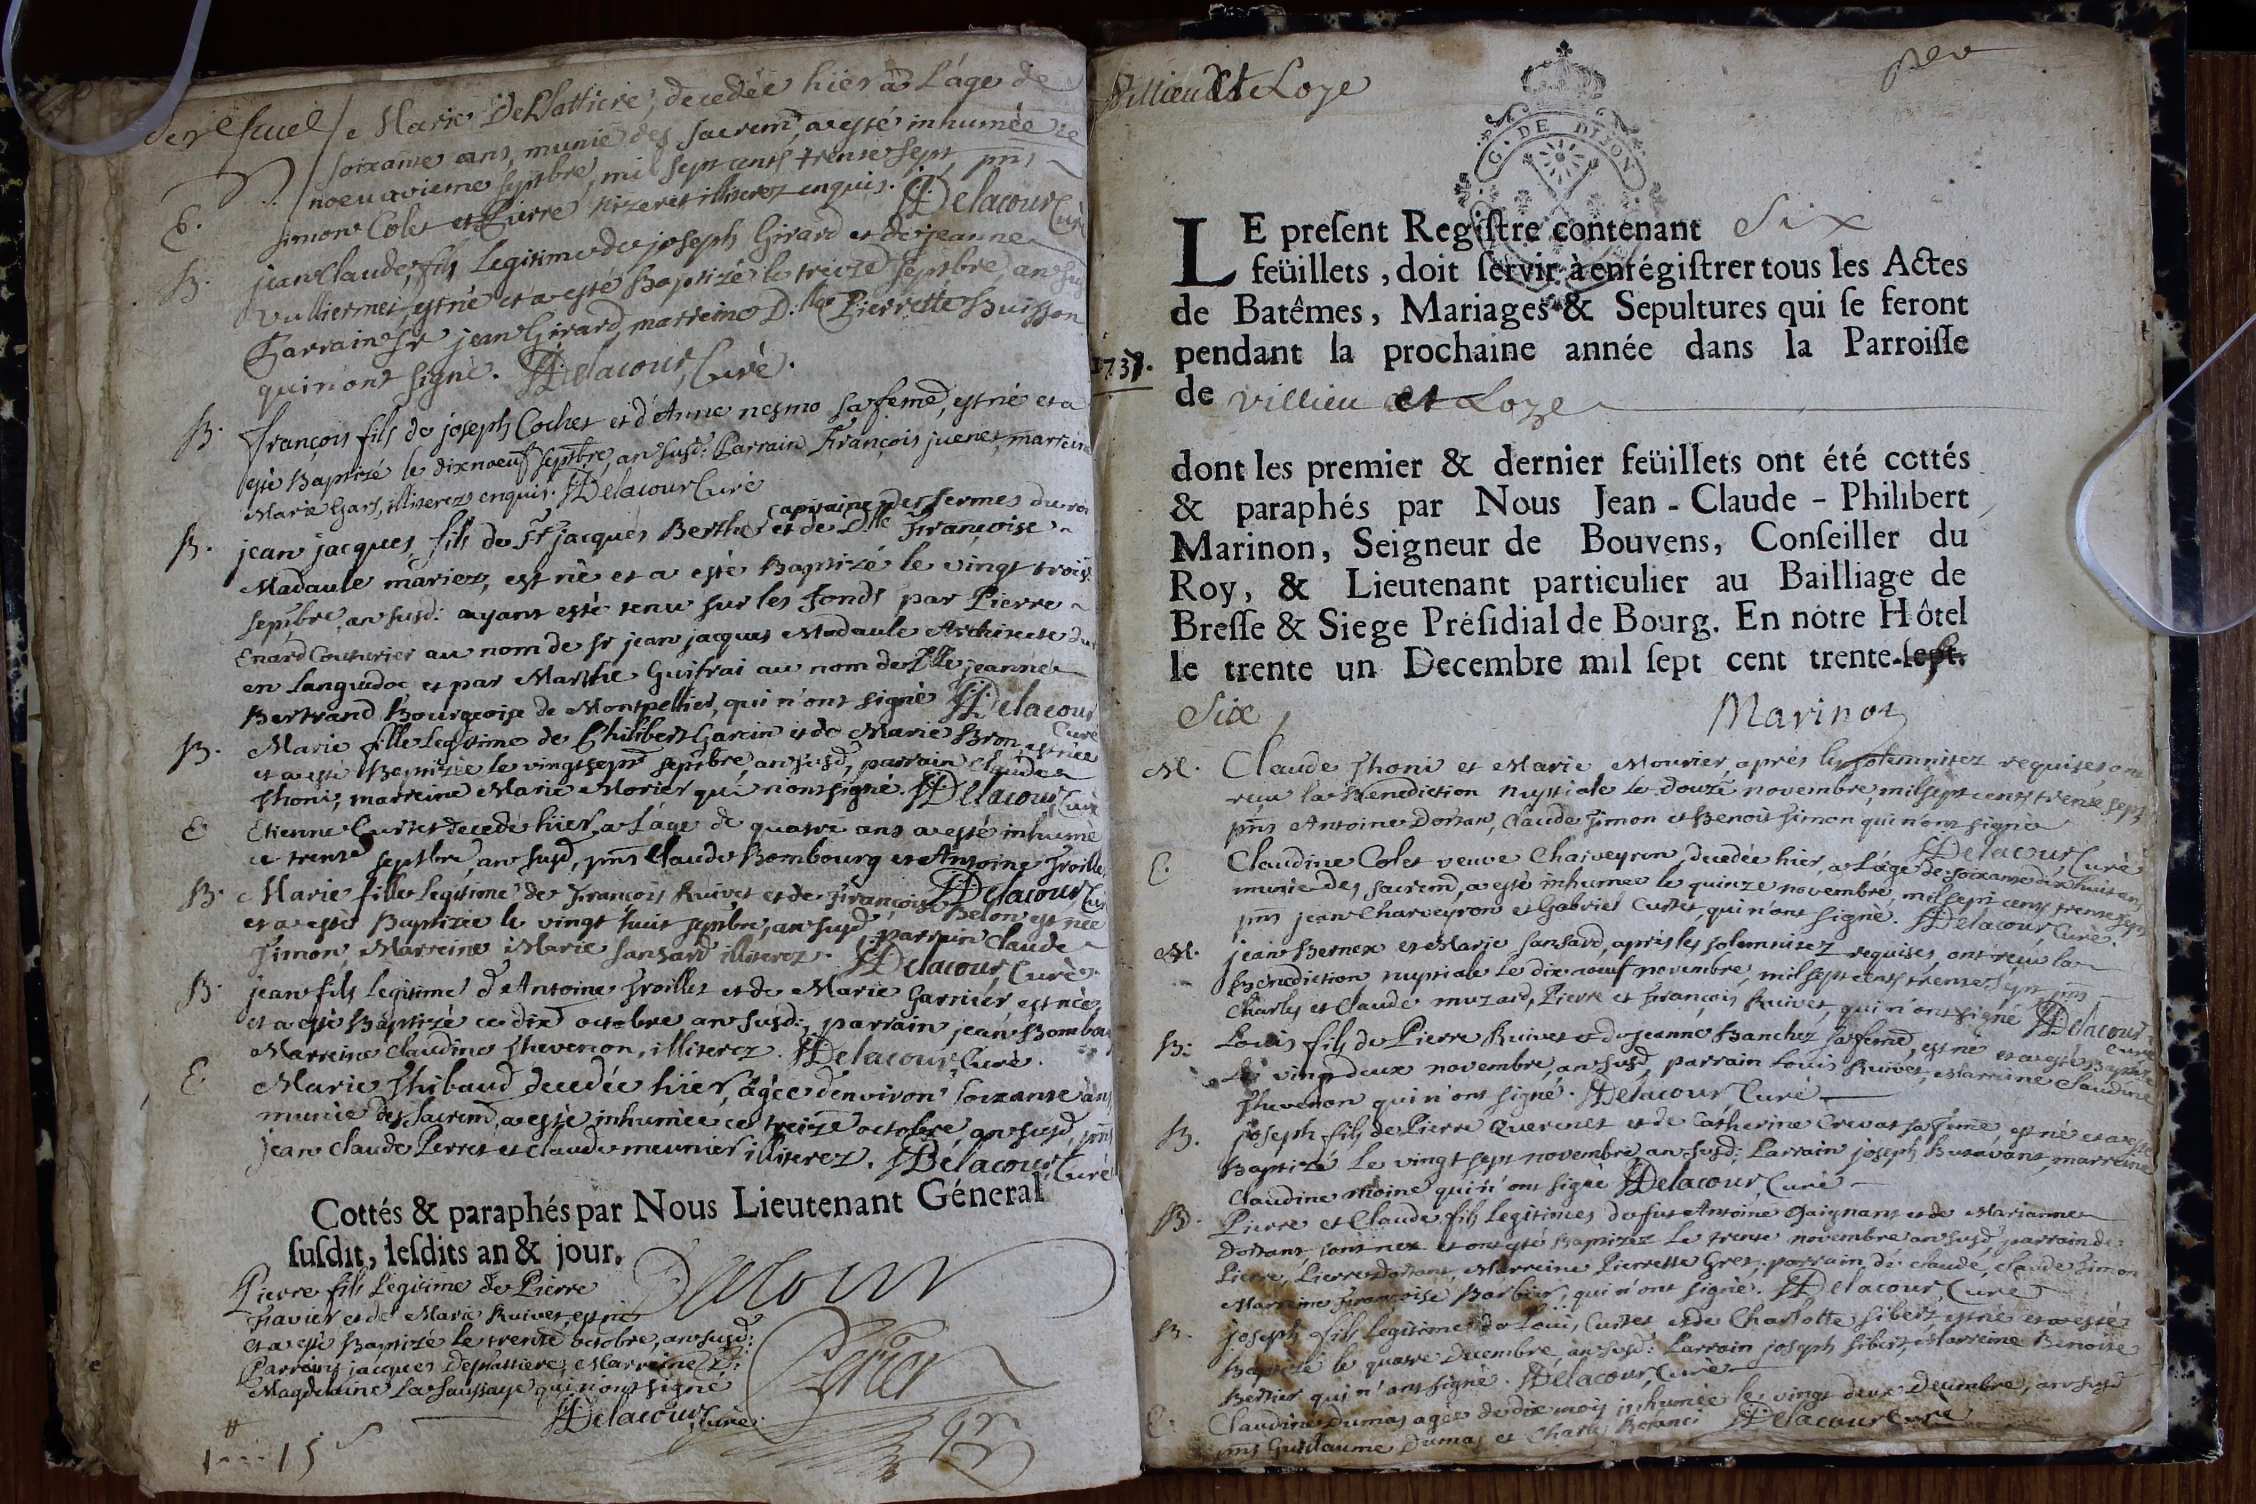 der feuel
Marie DePlattiere, decedée hier à L'age de
soixante ans, munie des sacremt, a esté inhumée le
noeuvieme septbre, mil sept cents trente sept, pnts
E.
simon Colet et Pierre nizeret illiterez enquis. Delacour Curé
B.
jean Claude, fils Legitime de joseph Girard et de jeanne
Vulliermet, est né et a esté Baptizé le treize septbre, an susd
Parrain sr jean Girard, marreine D.lle Pierrette Buisson
qui n'ont signé. Delacour, Curé.
B.
françois fils de joseph Cochet et d'Anne nesmo sa feme, est né et a
esté Baptizé le dixnoeuf septbre, an susd: Parrain François juenet, marreine
Marie Gars, illiterez enquis. Delacour Curé
capitaine des fermes du roi
B.
jean jacques, fils de sr jacques Berthe et de Dlle Françoise
Madaule mariez, est né et a esté Baptizé le vingt trois
septbre, an susd: ayant esté tenu sur les fonds par Pierre
Enard Couturier au nom de sr jean jacques Madaule Architecte
en Languedoc et par Marthe Guifrai au nom de Dlle jeanne
Bertrand Bourgeoise de Montpellier, qui n'ont signé Delacour
Curé
B.
Marie fille Legitime de Philibert Garcin et de Marie Bron, est née
et a esté Baptizée le vingt sept septbre, an susd, parrain Claude
Thoni, marreine Marie Morier qui n'ont signé. Delacour, Curé
E
Etienne Curtet decedé hier, a L'age de quatre ans a esté inhumé
le trente septbre, an susd, pnts Claude Bombourg et Antoine Troillet
Delacour Curé
B.
Marie fille Legitime de François Ruivet et de Françoise Belon est née
et a esté Baptizée le vingt huit septbre, an susd, parrain Claude
Simon Marreine Marie Sansard illiterez. Delacour, Curé.
B.
jean fils Legitime d'Antoine Troillet et de Marie Garnier, est né
et a esté Baptizé ce dix octobre an susd:, parrain jean Bombourg
Marreine Claudine Thevenon, illiterez. Delacour, Curé.
E
Marie Thibaud decedée hier, âgée d'environ soixante ans
munie des sacremt, a esté inhumée ce treize octobre an susd, pnts
jean Claude Perret et Claude meunier illiterez. Delacour, Curé
Cottés & paraphés par Nous Lieutenant Géneral
susdit, lesdits an & jour.
Pierre fils Legitime de Pierre
Favier et de Marie Ruivet, est né
et a esté Baptizé le trente octobre, an susd:
Parrain jacques DePlattiere, Marreine D:
Magdelaine La Saussaye qui n'ont signé
Delacour, Curé.
Villieu et Loye
G. DE DIJON
LE present Registre contenant Six
feüillets, doit servir à enrégistrer tous les Actes
de Batêmes, Mariages & Sepultures qui se feront
1737.
pendant la prochaine année dans la Parroisse
de Villieu et Loye
dont les premier & dernier feüillets ont été cottés
& paraphés par Nous Jean-Claude-Philibert
Marinon, Seigneur de Bouvens, Conseiller du
Roy, & Lieutenant particulier au Bailliage de
Bresse & Siege Présidial de Bourg. En nôtre Hôtel
le trente un Decembre mil sept cent trente-sept.
Six
Marinon
M.
Claude Thoni et Marie Mourier, aprés les solemnitez requises ont
reçu la Benediction nuptiale le douze novembre, mil sept cents trente sept
pnts Antoine Dortan, Claude Simon et Benoit Simon qui n'ont signé
Delacour, Curé
E.
Claudine Colet veuve Charveyron, decedée hier, a L'age de soixante dix huit ans,
munie des sacremt, a esté inhumée le quinze novembre, mil sept cents trente sept
pnts jean Charveyron et Gabriel Curtet, qui n'ont signé. Delacour Curé.
M.
jean Bernex et Marie Sansard, aprés les solemnitez requises, ont reçu la
Benediction nuptiale le dix noeuf novembre, mil sept cents trente sept pnts
Charles et Claude muzard, Pierre et François Ruivet, qui n'ont signé Delacour
Curé
B:
Louis fils de Pierre Ruivet et de jeanne Banchet sa feme, est né et a esté Baptizé
le vingt deux novembre, an susd, parrain Louis Ruivet, Marreine Claudine
Thevenon qui n'ont signé. Delacour Curé
B.
joseph fils de Pierre Quercuet et de Catherine Crevat sa feme, est né et a esté
Baptizé le vingt sept novembre, an susd: Parrain joseph Butavant, marreine
Claudine moine qui n'ont signé Delacour Curé
B.
Pierre et Claude fils legitimes de fut Antoine Gaignant et de Marianne
Dortant, sont nez et ont esté Baptizez le trente novembre an susd, parrain de
Pierre, Pierre Dortant, Marreine Pierrette Gret, parrain de Claude, Claude Simon
Marreine Françoise Barbier, qui n'ont signé. Delacour, Curé
B.
joseph fils legitime de Loüis Curtet et de Charlotte Sibert, est né et a esté
Baptizé le quatre Decembre an susd: Parrain joseph Sibert, Marreine Benoite
Bertier qui n'ont signé. Delacour, Curé
E.
Claudine Dumas agée de dix mois inhumée le vingt deux decembre, an susd
pnts Guillaume Dumas et Charles Delacour Curé